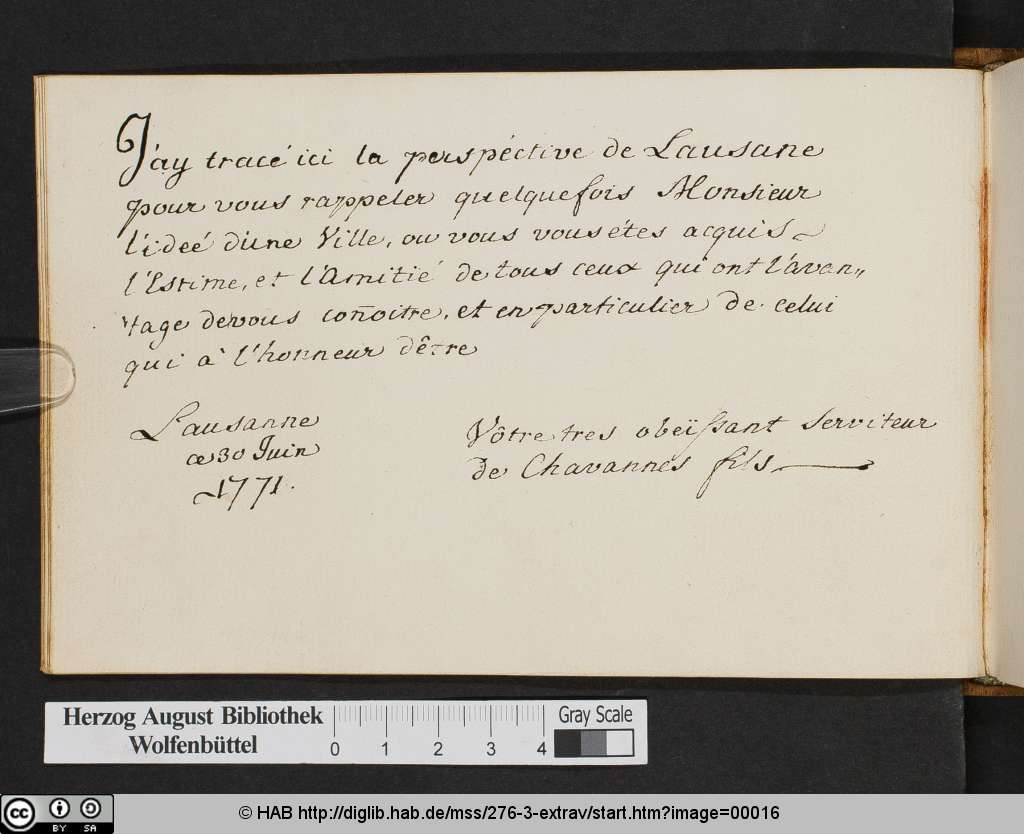 J'ay tracé ici la perspéctive de Lausane
pour vous rappeler quelquefois Monsieur
l'ideé d'une Ville, ou vous vous étes acquis
l'Estime, et l'Amitié de tous ceux qui ont l'avan„
tage de vous coñoitre, et en particulier de celui
qui à l'honneur dêtre
Lausanne
ce 30 Juin
1771.
Vôtre tres obeïssant Serviteur
de Chavannes fils
Herzog August Bibliothek
Wolfenbüttel
0 1 2 3 4
Gray Scale
cc BY SA
© HAB http://diglib.hab.de/mss/276-3-extrav/start.htm?image=00016